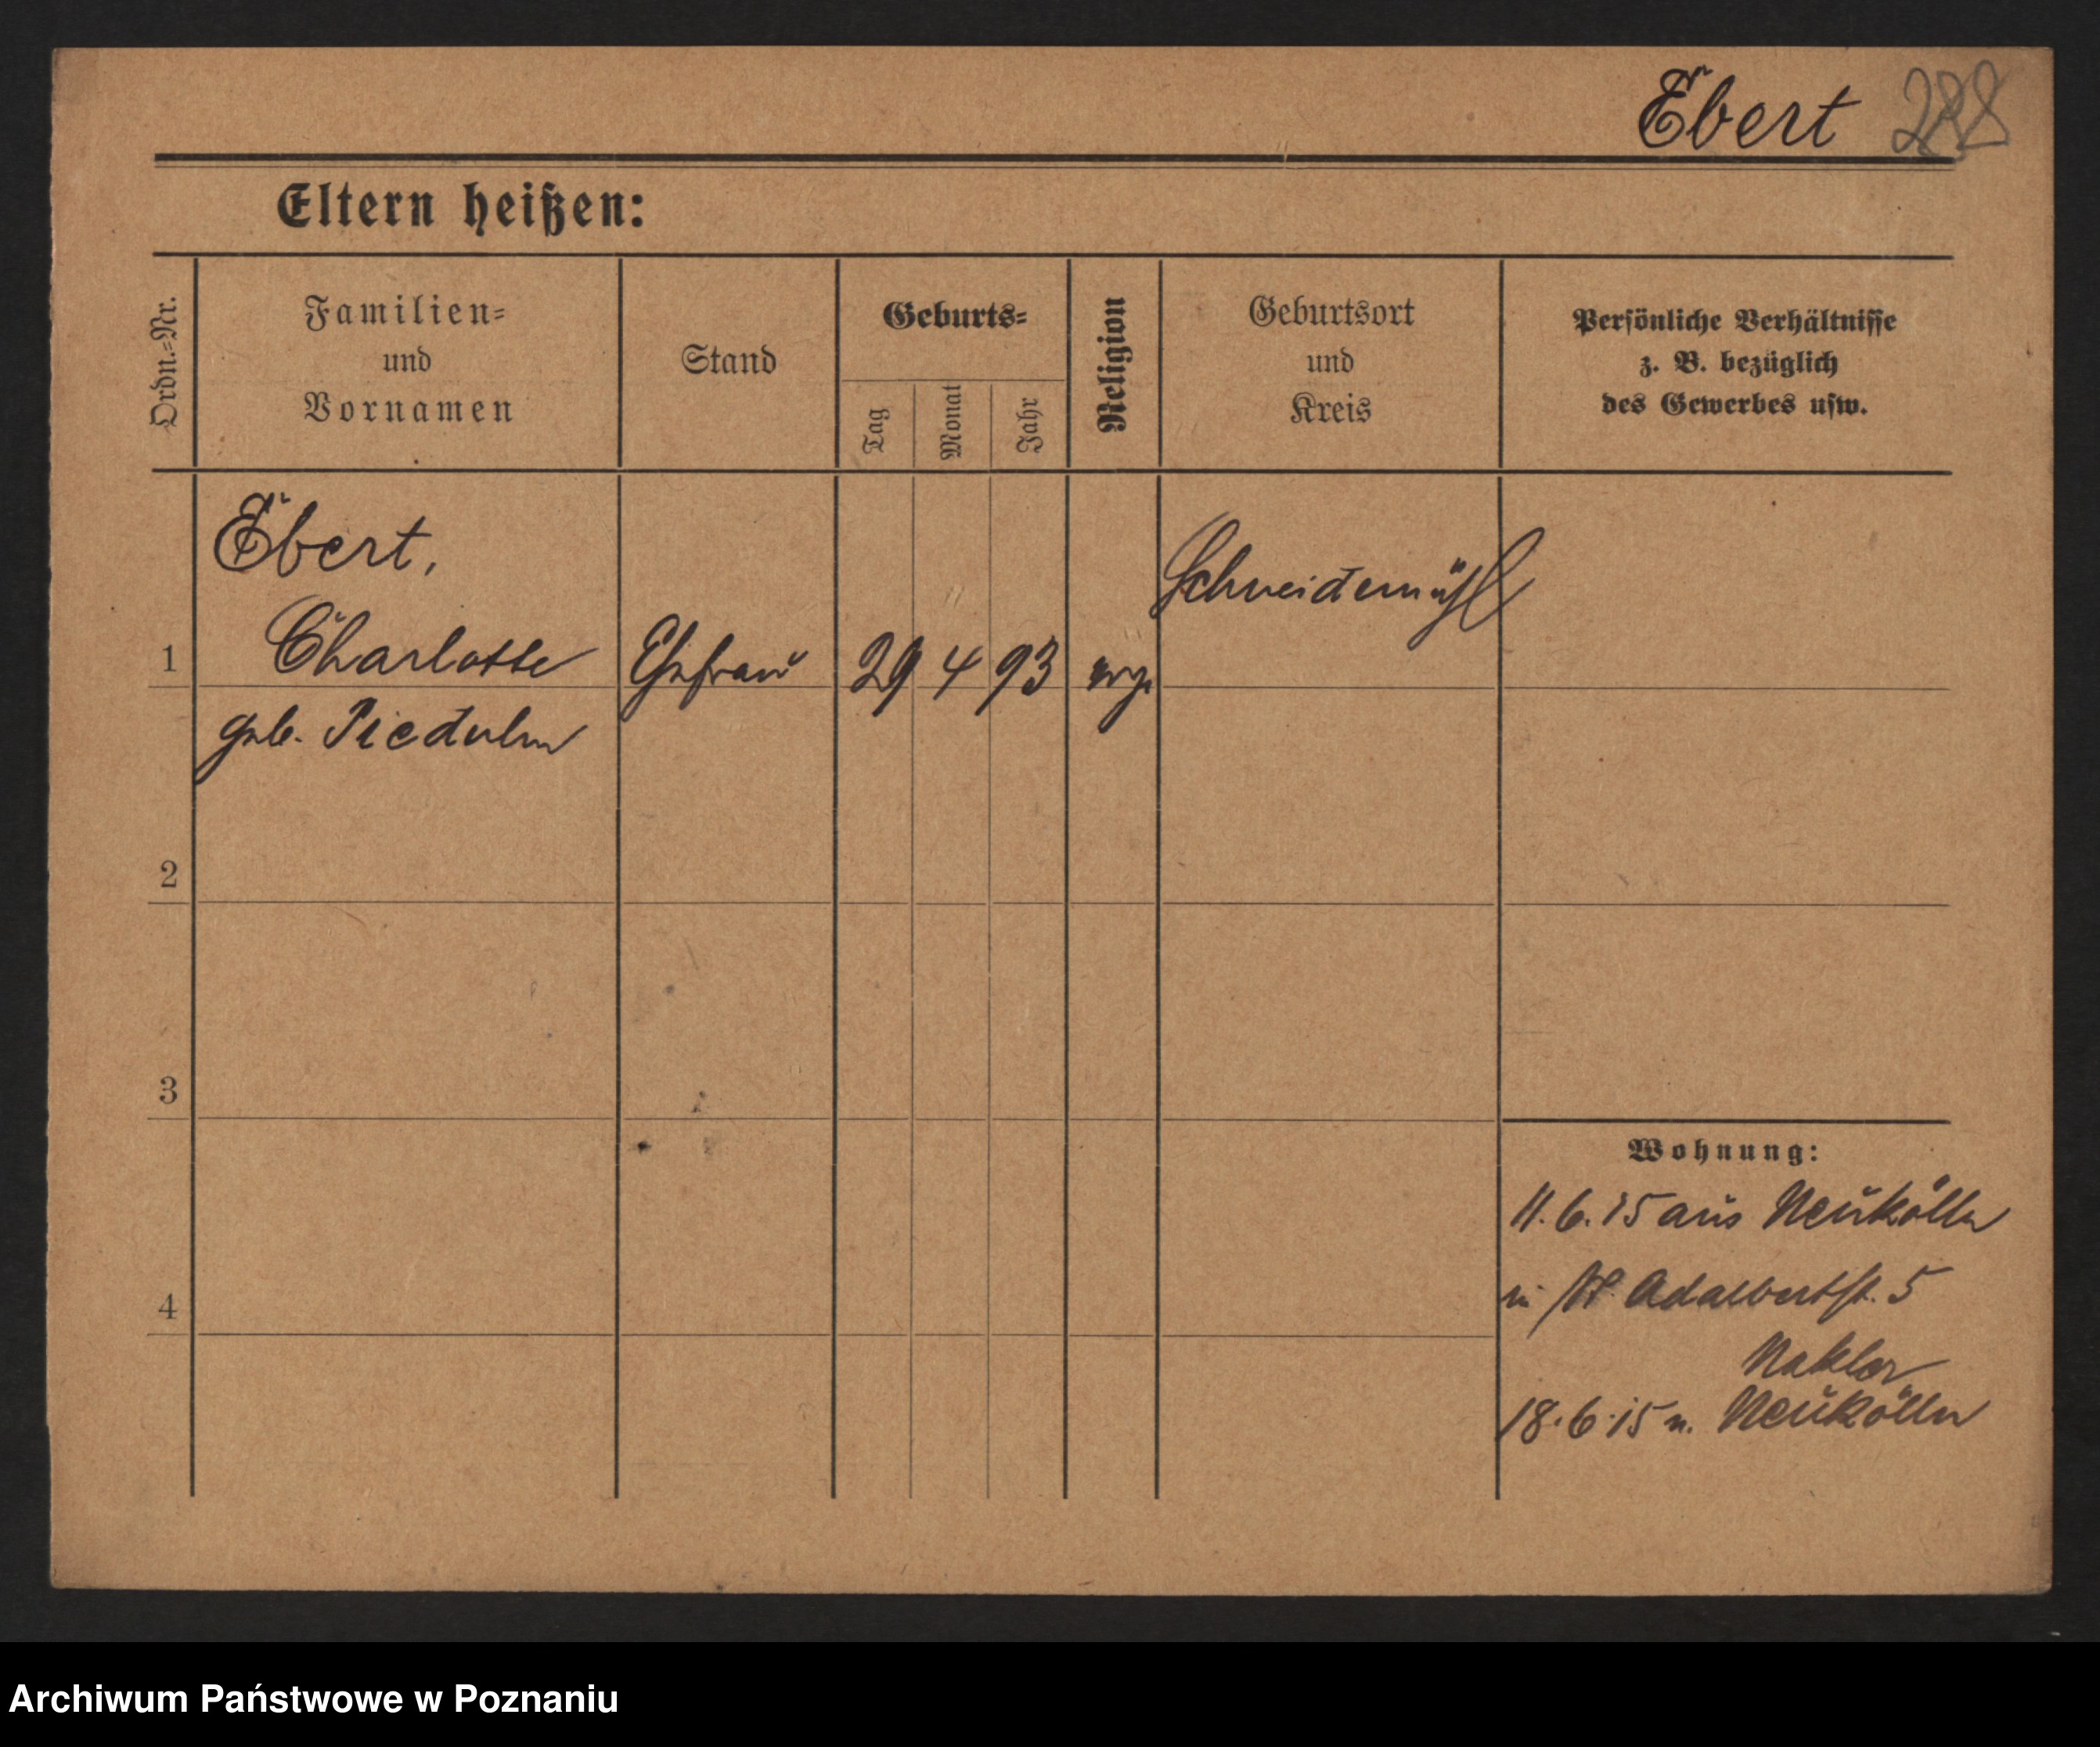 Ebert 288
Eltern heißen:
Ordn.=Nr.
Familien=
und
Vornamen
Stand
Geburts=
Tag
Monat
Jahr
Religion
Geburtsort
und
Kreis
Persönliche Verhältnisse
z. B. bezüglich
des Gewerbes usw.
Ebert,
Schneidemühl
1 Charlotte Ehefrau 29 4 93 evg.
geb.
2
3
4
Wohnung:
11.6.15 aus Neukölln
in St. Adalbertst. 5
18.6.15 n. Neukölln
Archiwum Państwowe w Poznaniu